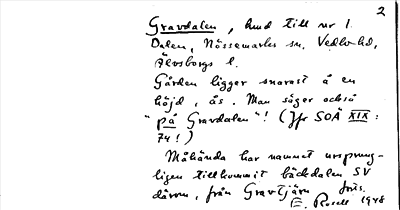 2
Gravdalen, hmd till nr 1
Dalen, Nössemarks sn, Vedbo hd,
Älvsborgs l.
Gården ligger snarast å en
höjd, ås. Man säger också
"på Gravdalen"! (Jfr SOÄ XIX:
74!)
Måhända har namnet ursprung-
ligen tillkommit bäckdalen SV
därom, från Gravtjärn
E. Rosell 1948